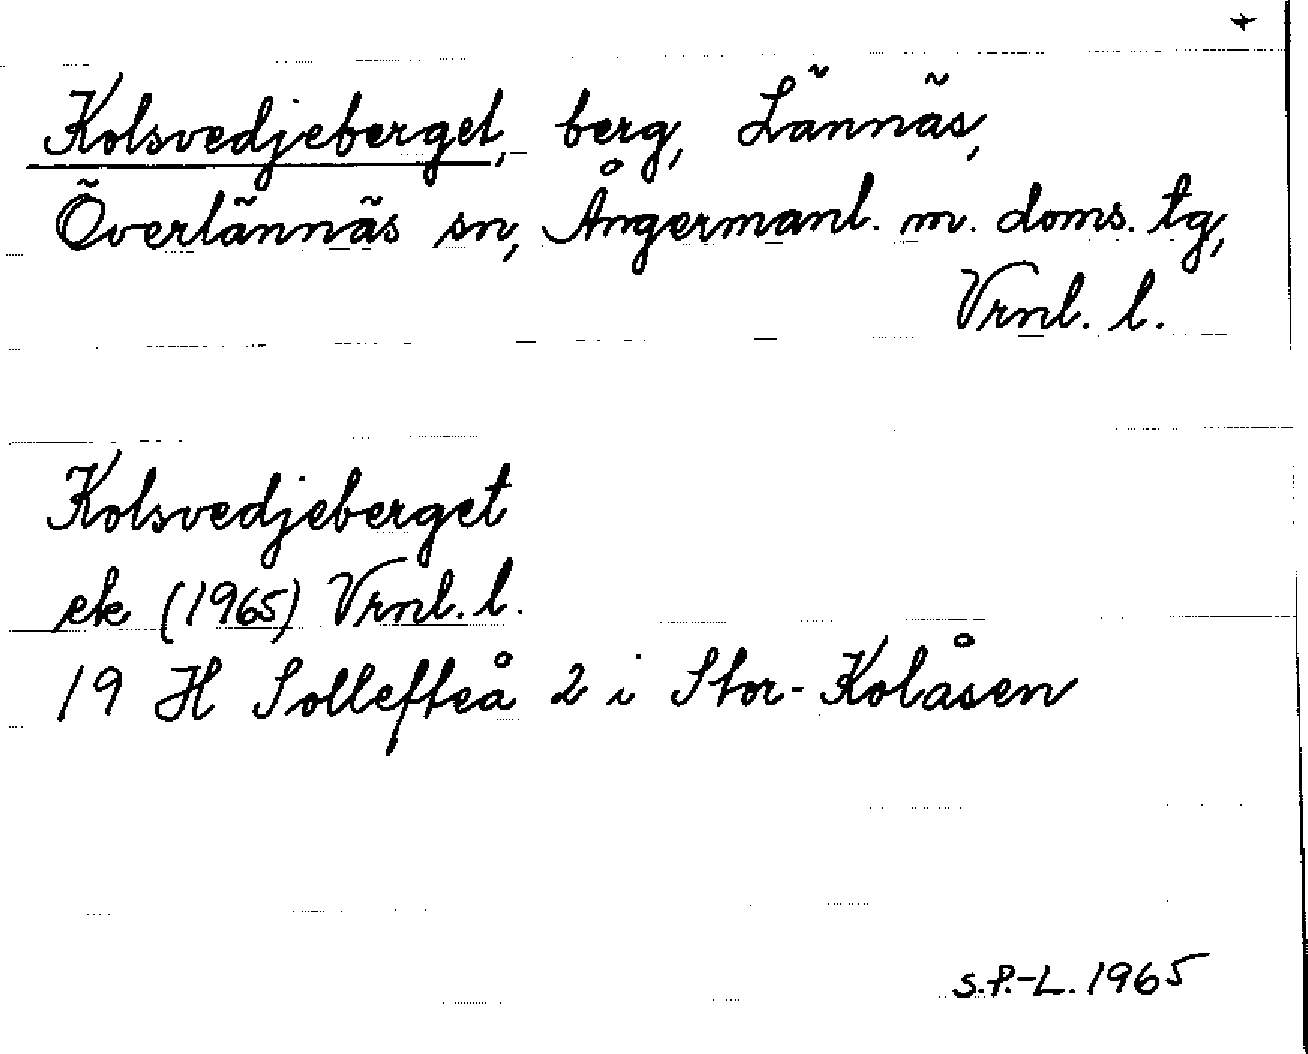 +
Kolsvedjeberget, berg, Lännäs,
Överlännäs sn, Ångermanl. m. doms. tg,
Vrnl. l.
Kolsvedjeberget
ek (1965) Vrnl. l.
19 H Sollefteå 2 i Stor-Kolåsen
S.P.-L. 1965